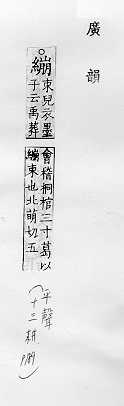 廣韻
○繃束兒衣墨
子云禹葬
會稽桐棺三寸葛以
繃束也北萌切五
(平聲
十三耕